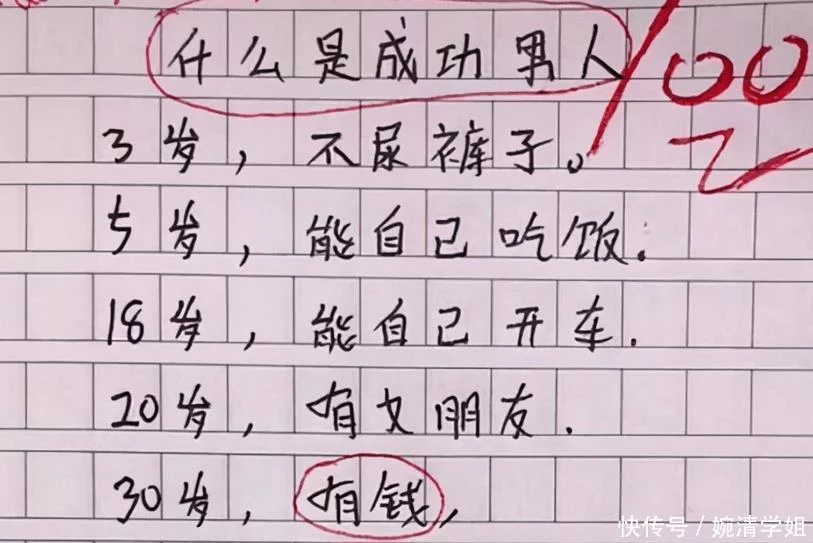 什么是成功男人
100
3岁，不尿裤子。
5岁，能自己吃饭.
18岁，能自己开车.
20岁，有女朋友.
30岁，有钱，
快传号／婉清学姐